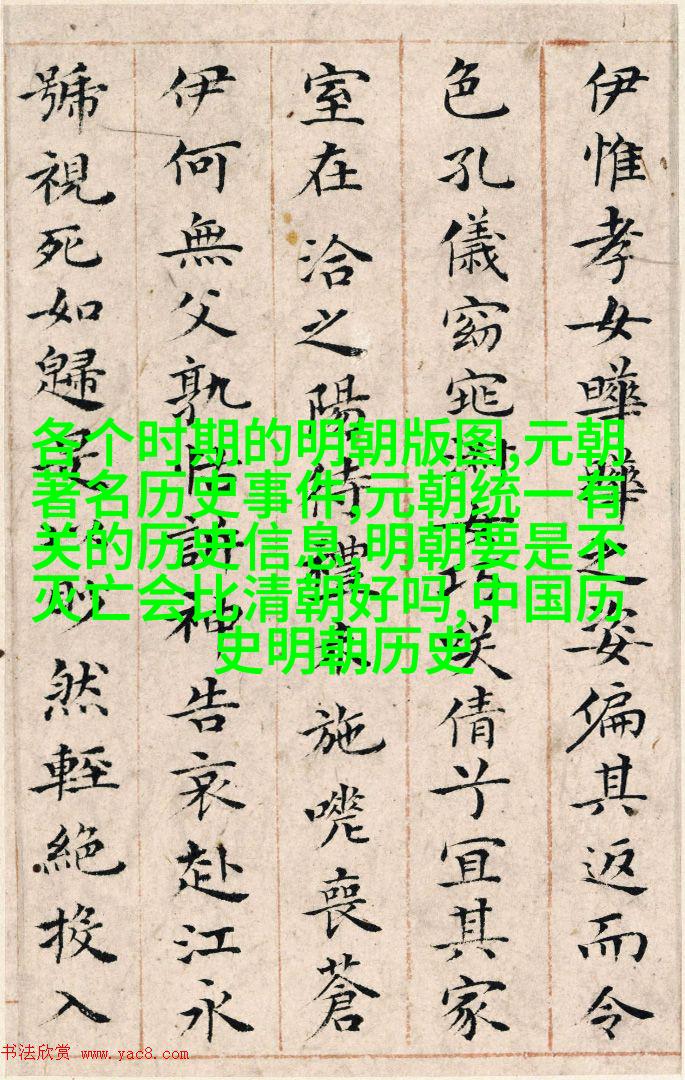 伊惟孝女曄曄之姿偏其返而令
色孔儀窈窕淑女巧咲倩兮宜其家
室在洽之陽待禮未施嗟喪蒼
伊何無父孰怙訴神告哀赴江永
號視死如歸是以眇然輕絕投入
各个时期的明朝版图,元朝
著名历史事件,元朝统一有
关的历史信息,明朝要是不
灭亡会比清朝好吗,中国历
史明朝历史
书法欣赏 www.yac8.com